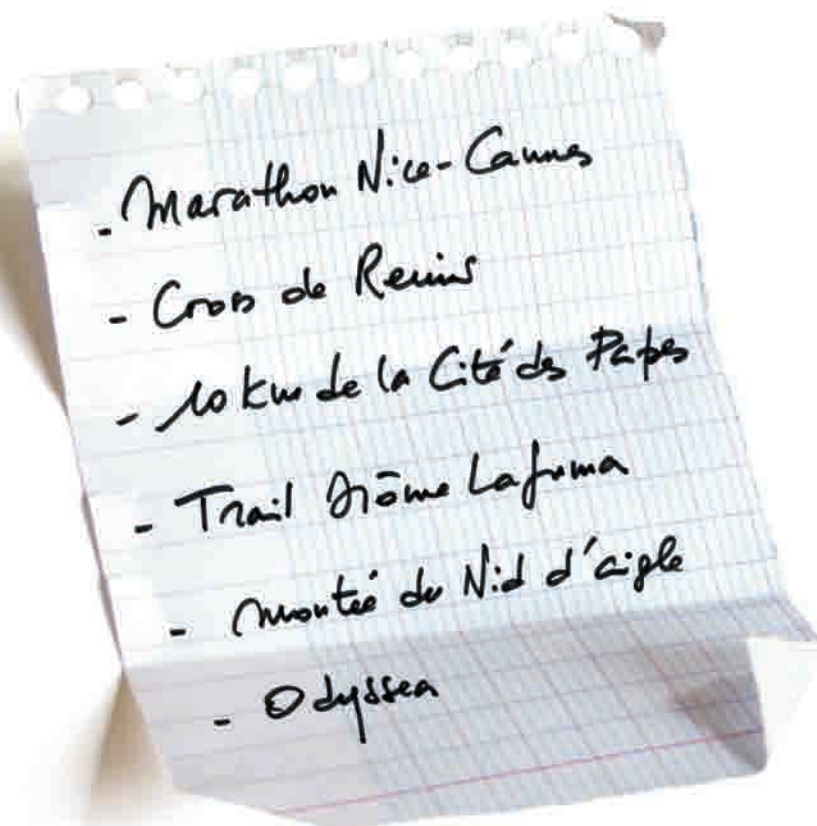 - Marathon Nice-Cannes
- Cross de Reims
- 10 km de la Cité des Papes
- Trail Drôme Lafuma
- montée du Nid d'aigle
- Odyssea